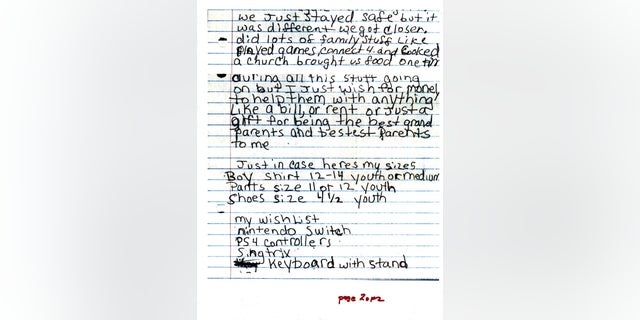 we just stayed safe but it
was different we got closer.
did lots of family stuff like
played games, connect 4. and cooked
a church brought us food one
during all this stuff going
on but I just wish for money
to help them with anything
Like a bill, or rent or Just a
gift for being the best grand
parents and bestest parents
to me
Just in case heres my sizes
Boy shirt 12-14 youth or medium
Pants size 11 or 12 youth
Shoes size 4½ youth
my wishList
nintendo Switch
PS4 controllers
Singtrix
Keyboard with stand
page 2 of 2